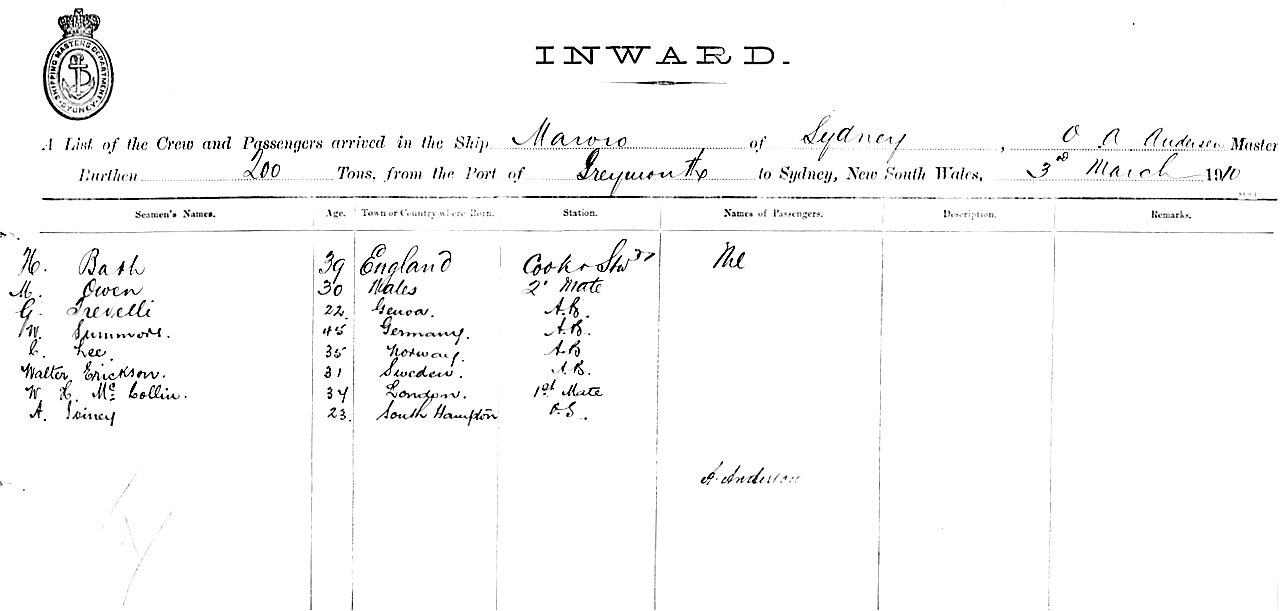 SHIPPING MASTERS DEPARTMENT SYDNEY
INWARD.
A List of the Crew and Passengers arrived in the Ship Maroro of Sydney, O A Andersen Master
Burthen 200 Tons, from the Port of Greymouth to Sydney, New South Wales, 3rd March 1910
Seamen's Names. Age. Town or Country where Born. Station. Names of Passengers. Description. Remarks.
H. Bash 39 England Cook & Stwd
M. Owen 30 Wales 2d Mate
G. Trevelli 22 Genoa. A.B.
W. Summors. 45 Germany. A.B.
C. Lee. 35 Norway. A.B
Walter Erickson. 31 Sweden. A.B.
W H. Mc Collin. 34 London. 1st Mate
A. 23. South Hampton O.S.
A. Anderson